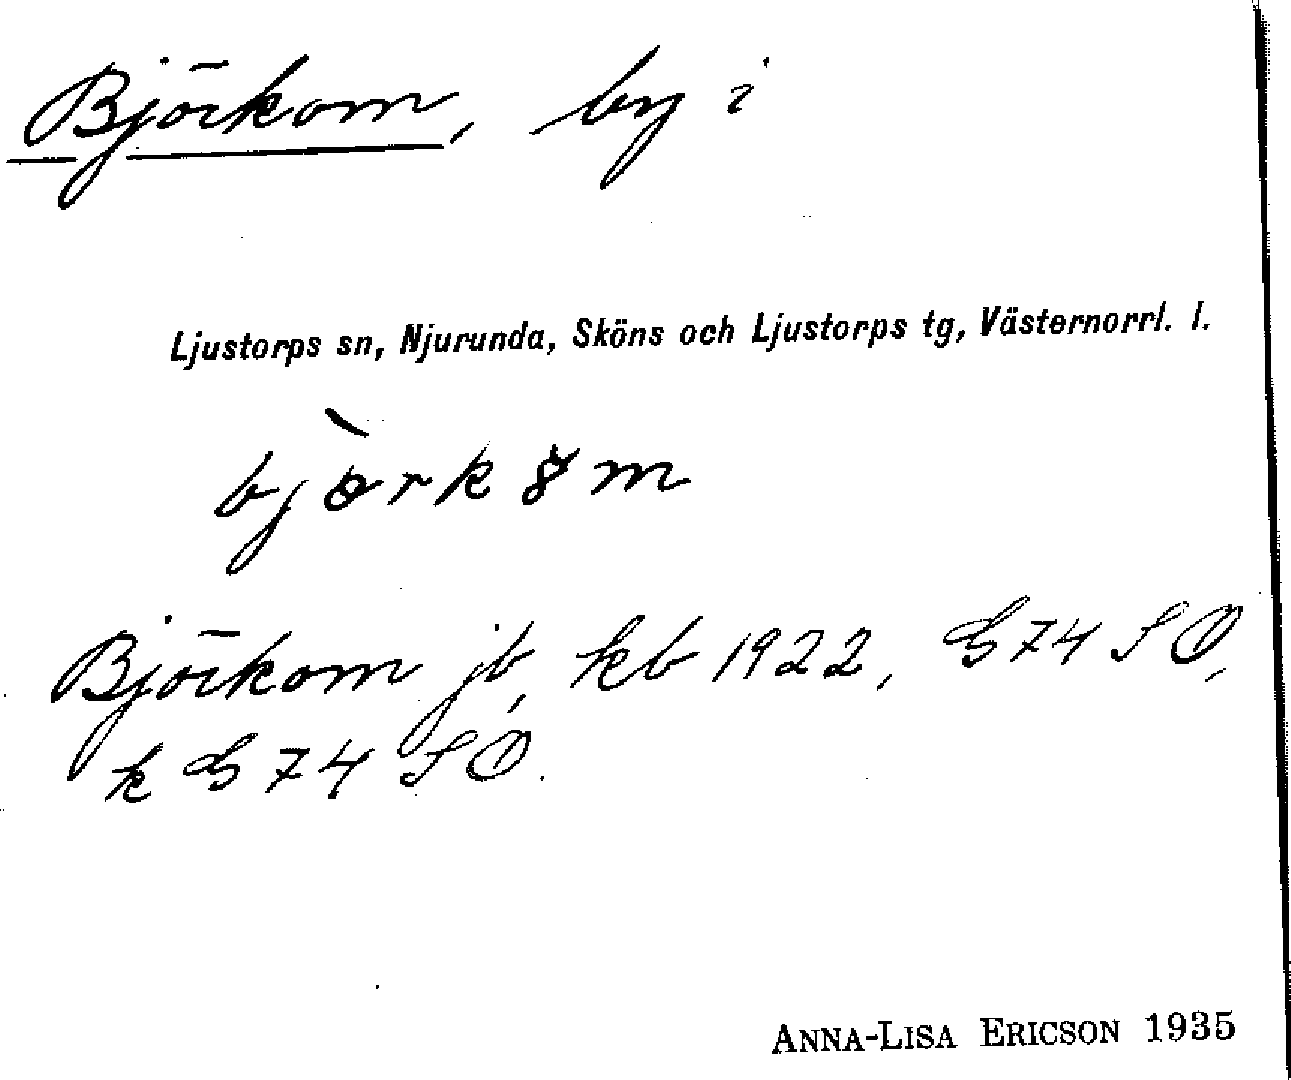 Björkom, by i
Ljustorps sn, Njurunda, Sköns och Ljustorps tg, Västernorrl. l.
bjòrkȣm
Björkom jb, kb 1922, G 74 SO,
k G 74 SO.
ANNA-LISA ERICSON 1935